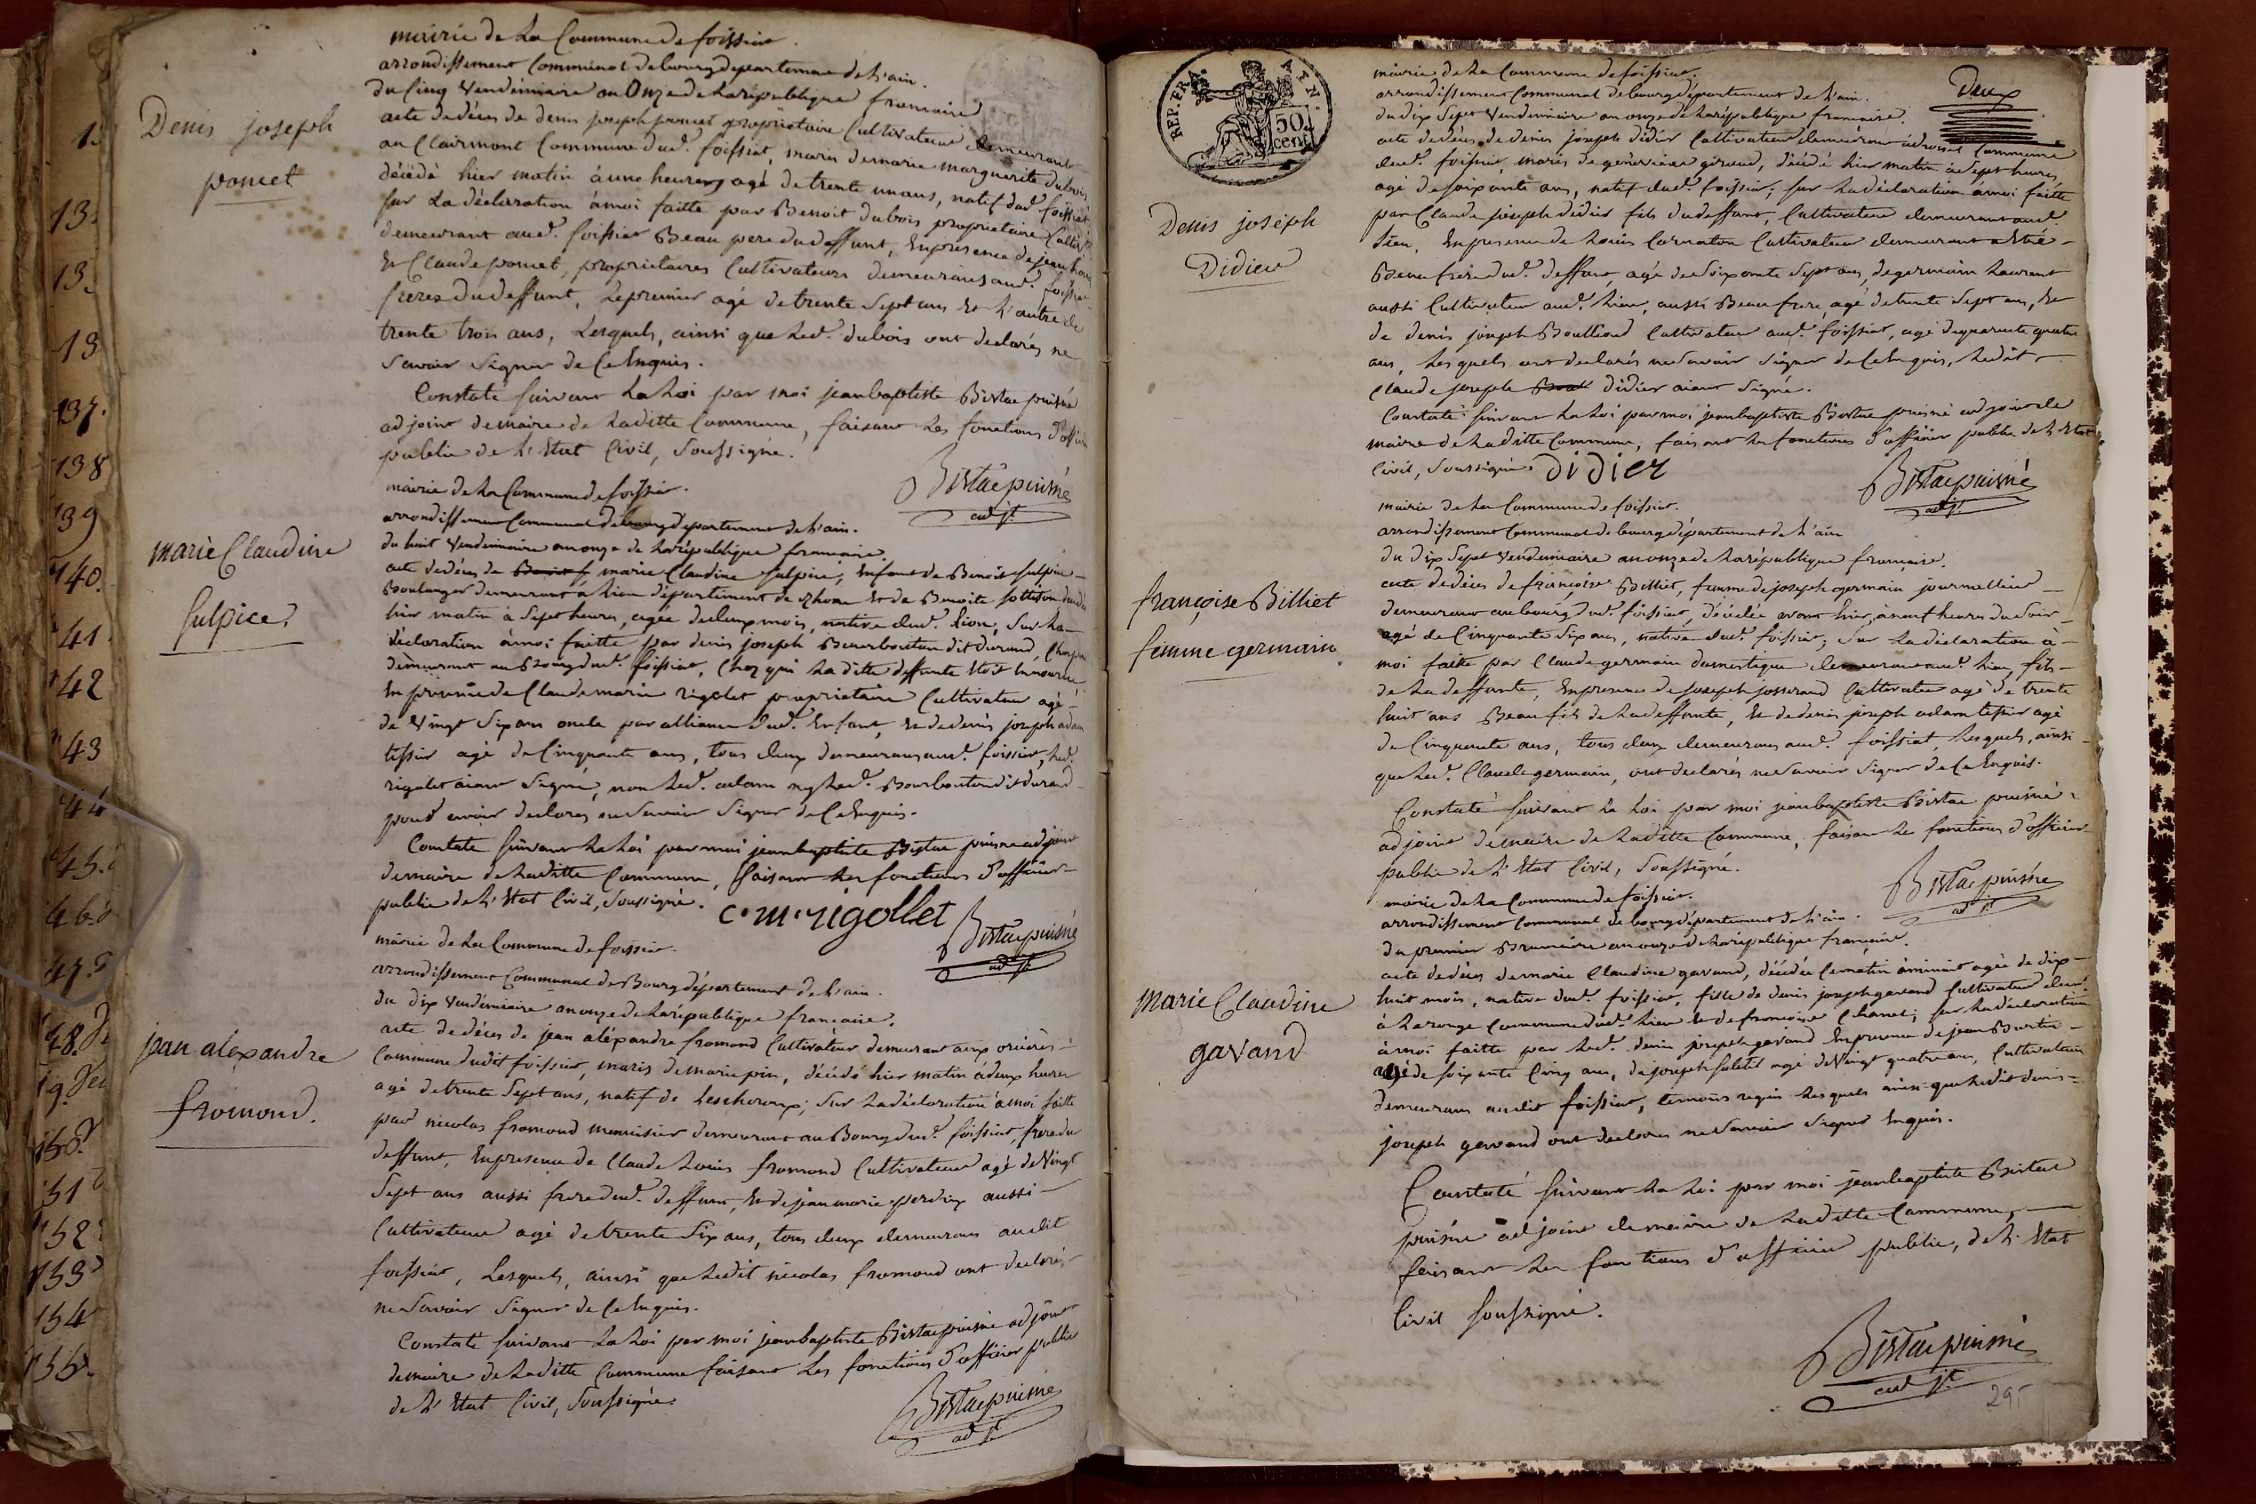 1.
13.
13.
13
137.
138
139
140.
41
42
43
44
45.
46.
47.
48.
49.
150.
151
152
153
154
155.
Denis joseph
poncet
mairie de La Commune de foissiat.
arrondissement Communal de bourg departement de L'ain.
du Cinq Vendémiaire an Onze de La république francaise
acte de déces de denis joseph poncet propriétaire Cultivateur demeurant
au Clairmont Commune dud. foissiat, maris de marie marguerite dubois
décédé hier matin à une heure, agé de trente un ans, natif dud. foissiat
sur La déclaration à moi faitte par Benoit dubois propriétaire Cultiv
demeurant aud. foissiat Beau pere du deffunt, En présence de jean
Et Claude poncet, propriétaires Cultivateurs demeurans aud. foissiat
freres du deffunt, Le premier agé de trente Sept ans Et L'autre de
trente trois ans, Lesquels, ainsi que Led. dubois ont déclarés ne
Savoir Signer de Ce Enquis.
Constaté suivant La Loi par moi jean baptiste Bistac puisné
adjoint de maire de Laditte Commune, faisant Les fonctions d'officier
public de L'Etat Civil, Soussigné.
Bistac puisné
adjt.
marie Claudine
Sulpice
mairie de La Commune de foissiat.
arrondissement Communal de bourg departement de L'ain.
du huit Vendemiaire an onze de La république francaise.
acte de déces de marie Claudine Sulpice, Enfant de Benoit Sulpice
Boulanger demeurant à Lion département du Rhone Et de Benoite
hier matin à Sept heures, agée de deux mois, native dud. Lion, Sur La
déclaration à moi faitte par denis joseph Bourbouton dit durand,
demeurant au Bourg dud. foissiat, Chez qui La ditte deffunte Etoit En nourrice
En présence de Claude marie rigolet propriétaire Cultivateur agé
de Vingt Six ans oncle par alliance dud. Enfant, Et de denis joseph adam
tissier agé de Cinquante ans, tous deux demeurans aud. foissiat, Led.
rigolet aiant Signé, non Led. adam ny Led. Bourbouton dit durand
pour avoir declarés ne Savoir Signer de Ce Enquis.
Constaté Suivant La Loi par moi jean baptiste Bistac puisné adjoint
de maire de Laditte Commune, faisant Les fonctions d'officier
public de L'Etat Civil, Soussigné.
c. m. rigollet
Bistac puisné
adjt.
jean aléxandre
fromond.
mairie de La Commune de foissiat.
arrondissement Communal de Bourg département de L'ain.
du dix Vendémiaire an onze de La république francaise.
acte de déces de jean aléxandre fromond Cultivateur demeurant aux
Commune dudit foissiat, maris de marie pin, décédé hier matin à deux heures
agé de trente Sept ans, natif de Lescheroux; Sur La déclaration à moi faitte
par nicolas fromond menuisier demeurant au Bourg dud. foissiat, frere du
deffunt, En présence de Claude Louis fromond Cultivateur agé de Vingt
Sept ans aussi frere dud. deffunt, Et de jean marie perdrix aussi
Cultivateur agé de trente Six ans, tous deux demeurans audit
foissiat, Lesquels, ainsi que Ledit nicolas fromond ont declarés
ne Savoir Signer de Ce Enquis.
Constaté suivant La Loi par moi jean baptiste Bistac puisné adjoint
de maire de Laditte Commune faisant Les fonctions d'officier public
de L'Etat Civil, Soussigné.
Bistac puisné
adjt.
REP. FRA.
50
cent
Deux
Denis joseph
Didier
mairie de La Commune de foissiat.
arrondissement Communal de bourg département de L'ain.
du dix Sept Vendémiaire an onze de La république francaise.
acte de déces de denis joseph didier Cultivateur demeurant Commune
dud. foissiat, maris de geneviève giroud, décédé hier matin à Sept heures
agé de soixante ans, natif dud. foissiat; sur La déclaration à moi faitte
par Claude joseph didier fils du deffunt, Cultivateur demeurant aud.
Lieu, En présence de Louis Cultivateur demeurant
Beau frere dud. deffunt, agé de Soixante Sept ans, de germain Laurent
aussi Cultivateur aud. Lieu, aussi Beau frere, agé de trente Sept ans, Et
de denis joseph Cultivateur aud. foissiat, agé de quarante quatre
ans, Lesquels ont declarés ne Savoir Signer de Ce Enquis, Ledit
Claude joseph didier aiant Signé.
Constaté Suivant La Loi par moi jean baptiste Bistac puisné adjoint de
maire de Laditte Commune, faisant Les fonctions d'officier public de L'Etat
Civil, Soussigné.
didier
Bistac puisné
adjt.
françoise Billiet
femme germain
mairie de La Commune de foissiat.
arrondissement Communal de bourg département de L'ain
du dix Sept Vendemiaire an onze de La république francaise.
acte de déces de françoise Billiet, femme de joseph germain journallier
demeurant au bourg dud. foissiat, décédée avant hier, à neuf heures du Soir
agé de Cinquante Six ans, native dud. foissiat; Sur La déclaration à
moi faitte par Claude germain domestique demeurant aud. Lieu, fils
de La deffunte, En présence de joseph josserand Cultivateur agé de trente
huit ans Beau fils de La deffunte, Et de denis joseph adam tissier agé
de Cinquante ans, tous deux demeurans aud. foissiat, Lesquels, ainsi
que Led. Claude germain, ont declarés ne Savoir Signer de Ce Enquis.
Constaté Suivant La Loi par moi jean baptiste Bistac puisné
adjoint de maire de Laditte Commune, faisant Les fonctions d'officier
public de L'Etat Civil, Soussigné.
Bistac puisné
adjt.
Marie Claudine
gavand
mairie de La Commune de foissiat.
arrondissement Communal de bourg département de L'ain.
du premier Brumaire an onze de La république francaise.
acte de déces de marie Claudine gavand, décédée Ce matin à minuit agée de dix
huit mois, native dud. foissiat, fille de denis joseph gavand Cultivateur
à La ronge Commune dud. Lieu Et de francoise Chanel; sur La déclaration
à moi faitte par Led. denis joseph gavand En présence de jean
agé de soixante Cinq ans, de joseph agé de Vingt quatre ans, Cultivateurs
demeurans audit foissiat, témoins requis Lesquels ainsi que Ledit denis
joseph gavand ont declarés ne Savoir Signer Enquis.
Constaté Suivant La Loi par moi jean baptiste Bistac
puisné adjoint de maire de Laditte Commune,
faisant Les fonctions d'officier public, de L'Etat
Civil soussigné.
Bistac puisné
adjt.
295